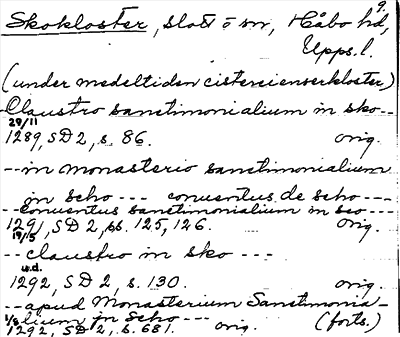 9.
Skokloster, slott o sn, Håbo hd,
Upps.l.
(under medeltiden cistercienserkloster)
Claustro sanctimonialium in sko--
29/11
1289, SD 2, s. 86. orig.
-- in monasterio sanctimonialium
in scho --- conuentus de scho ---
-- conuentus sanctimonialium in sco ---
1291, SD 2, ss. 125, 126. orig.
19/5
-- claustro in sko ---
u.d.
1292, SD 2, s. 130. orig.
-- apud Monasterium Sanctimonia-
lium in Scho ---
1/8
1292, SD 2, s. 681. orig. (forts.)